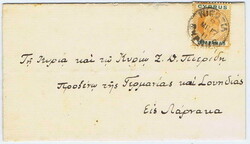 CYPRUS
NICOSIA
Τῇ Κυρίᾳ καὶ τῷ Κυρίῳ Ζ. Δ. Πιερίδῃ
Προξένῳ τῆς Γερμανίας καὶ Σουηδίας
Εἰς Λάρνακα